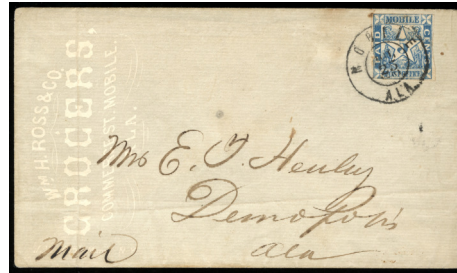 WM H. ROSS & CO.
GROCERS,
COMMERCE ST MOBILE,
ALA
MOBILE
PAID
ALA.
Mrs E. T. Henley
Demopolis
Ala
Mail